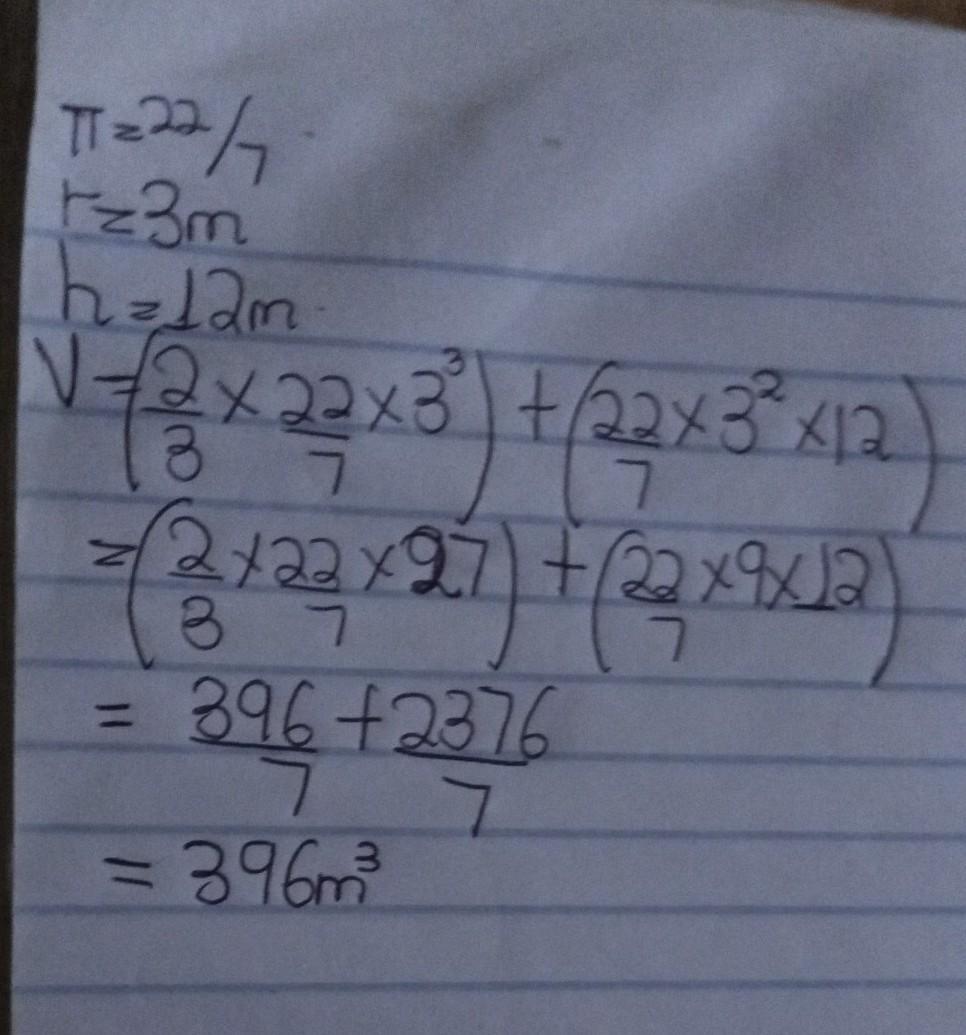 π=22/7
r=3m
h=12m
V=(2/3 × 22/7 × 3³) + (22/7 × 3² × 12)
=(2/3 × 22/7 × 27) + (22/7 × 9 × 12)
= 396/7 + 2376/7
= 396m³